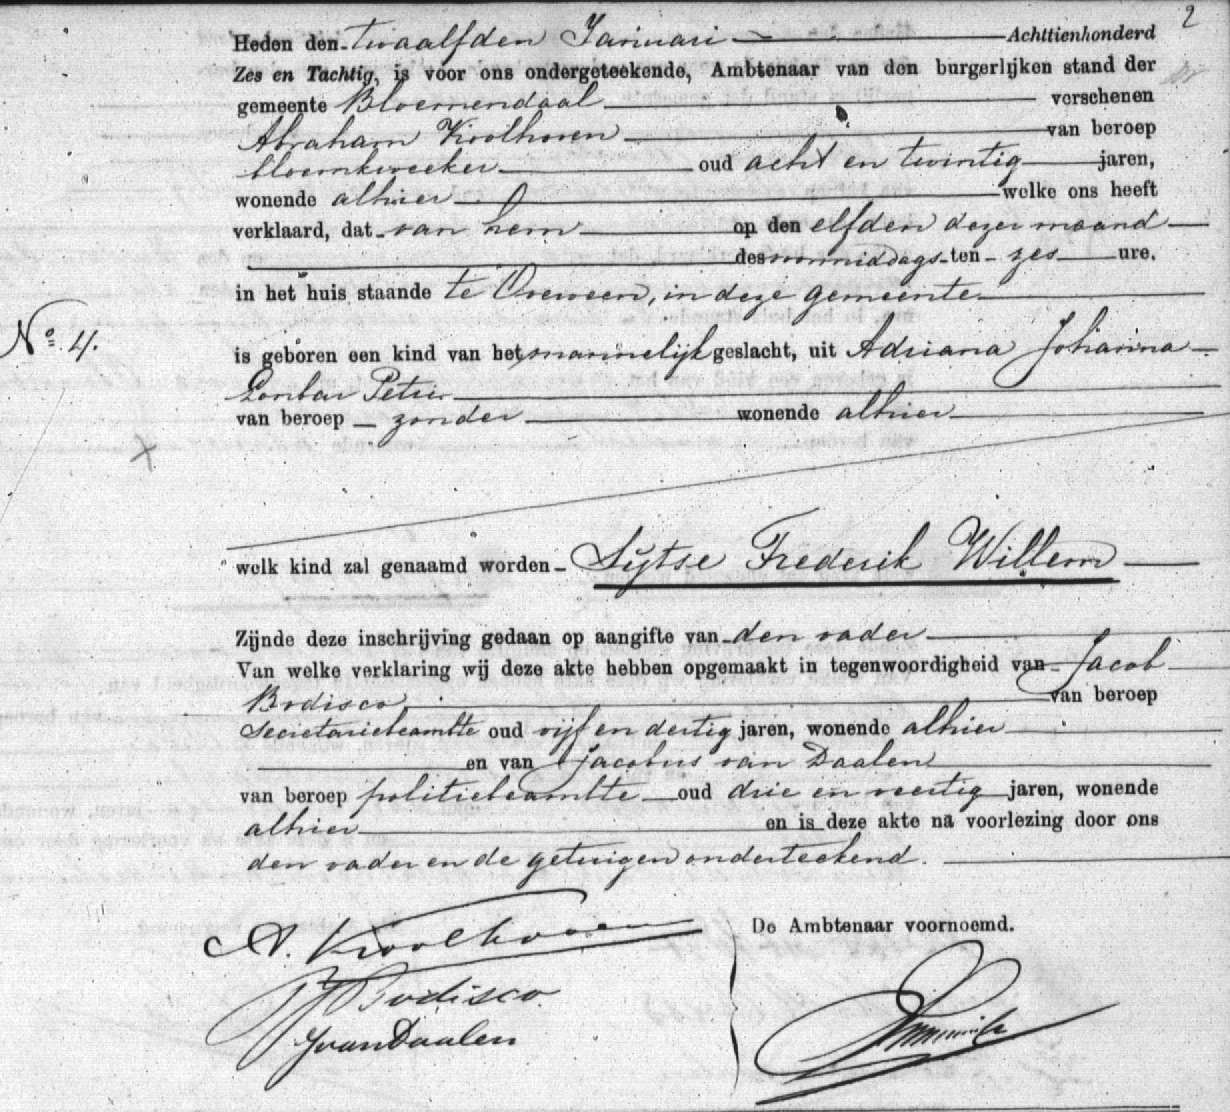 2
Heden den twaalfden Januari Achttienhonderd
Zes en Tachtig, is voor ons ondergeteekende, Ambtenaar van den burgerlijken stand der
gemeente Bloemendaal verschenen
Abraham Koolhoven van beroep
bloemkweeker oud acht en twintig jaren,
wonende alhier welke ons heeft
verklaard, dat van hem op den elfden dezer maand
des voormiddags ten zes ure.
in het huis staande te Overveen, in deze gemeente
No. 4.
is geboren een kind van het mannelijk geslacht, uit Adriana Johanna
Petri
van beroep zonder wonende alhier
welk kind zal genaamd worden Sijtse Frederik Willem
Zijnde deze inschrijving gedaan op aangifte van den vader
Van welke verklaring wij deze akte hebben opgemaakt in tegenwoordigheid van Jacob
Bodisco, van beroep
secretariebeambte oud vijf en dertig jaren, wonende alhier
en van Jacobus van Daalen
van beroep politiebeambte oud drie en veertig jaren, wonende
alhier en is deze akte na voorlezing door ons
den vader en de getuigen onderteekend.
A. Koolhoven
De Ambtenaar voornoemd.
J Bodisco
JvanDaalen